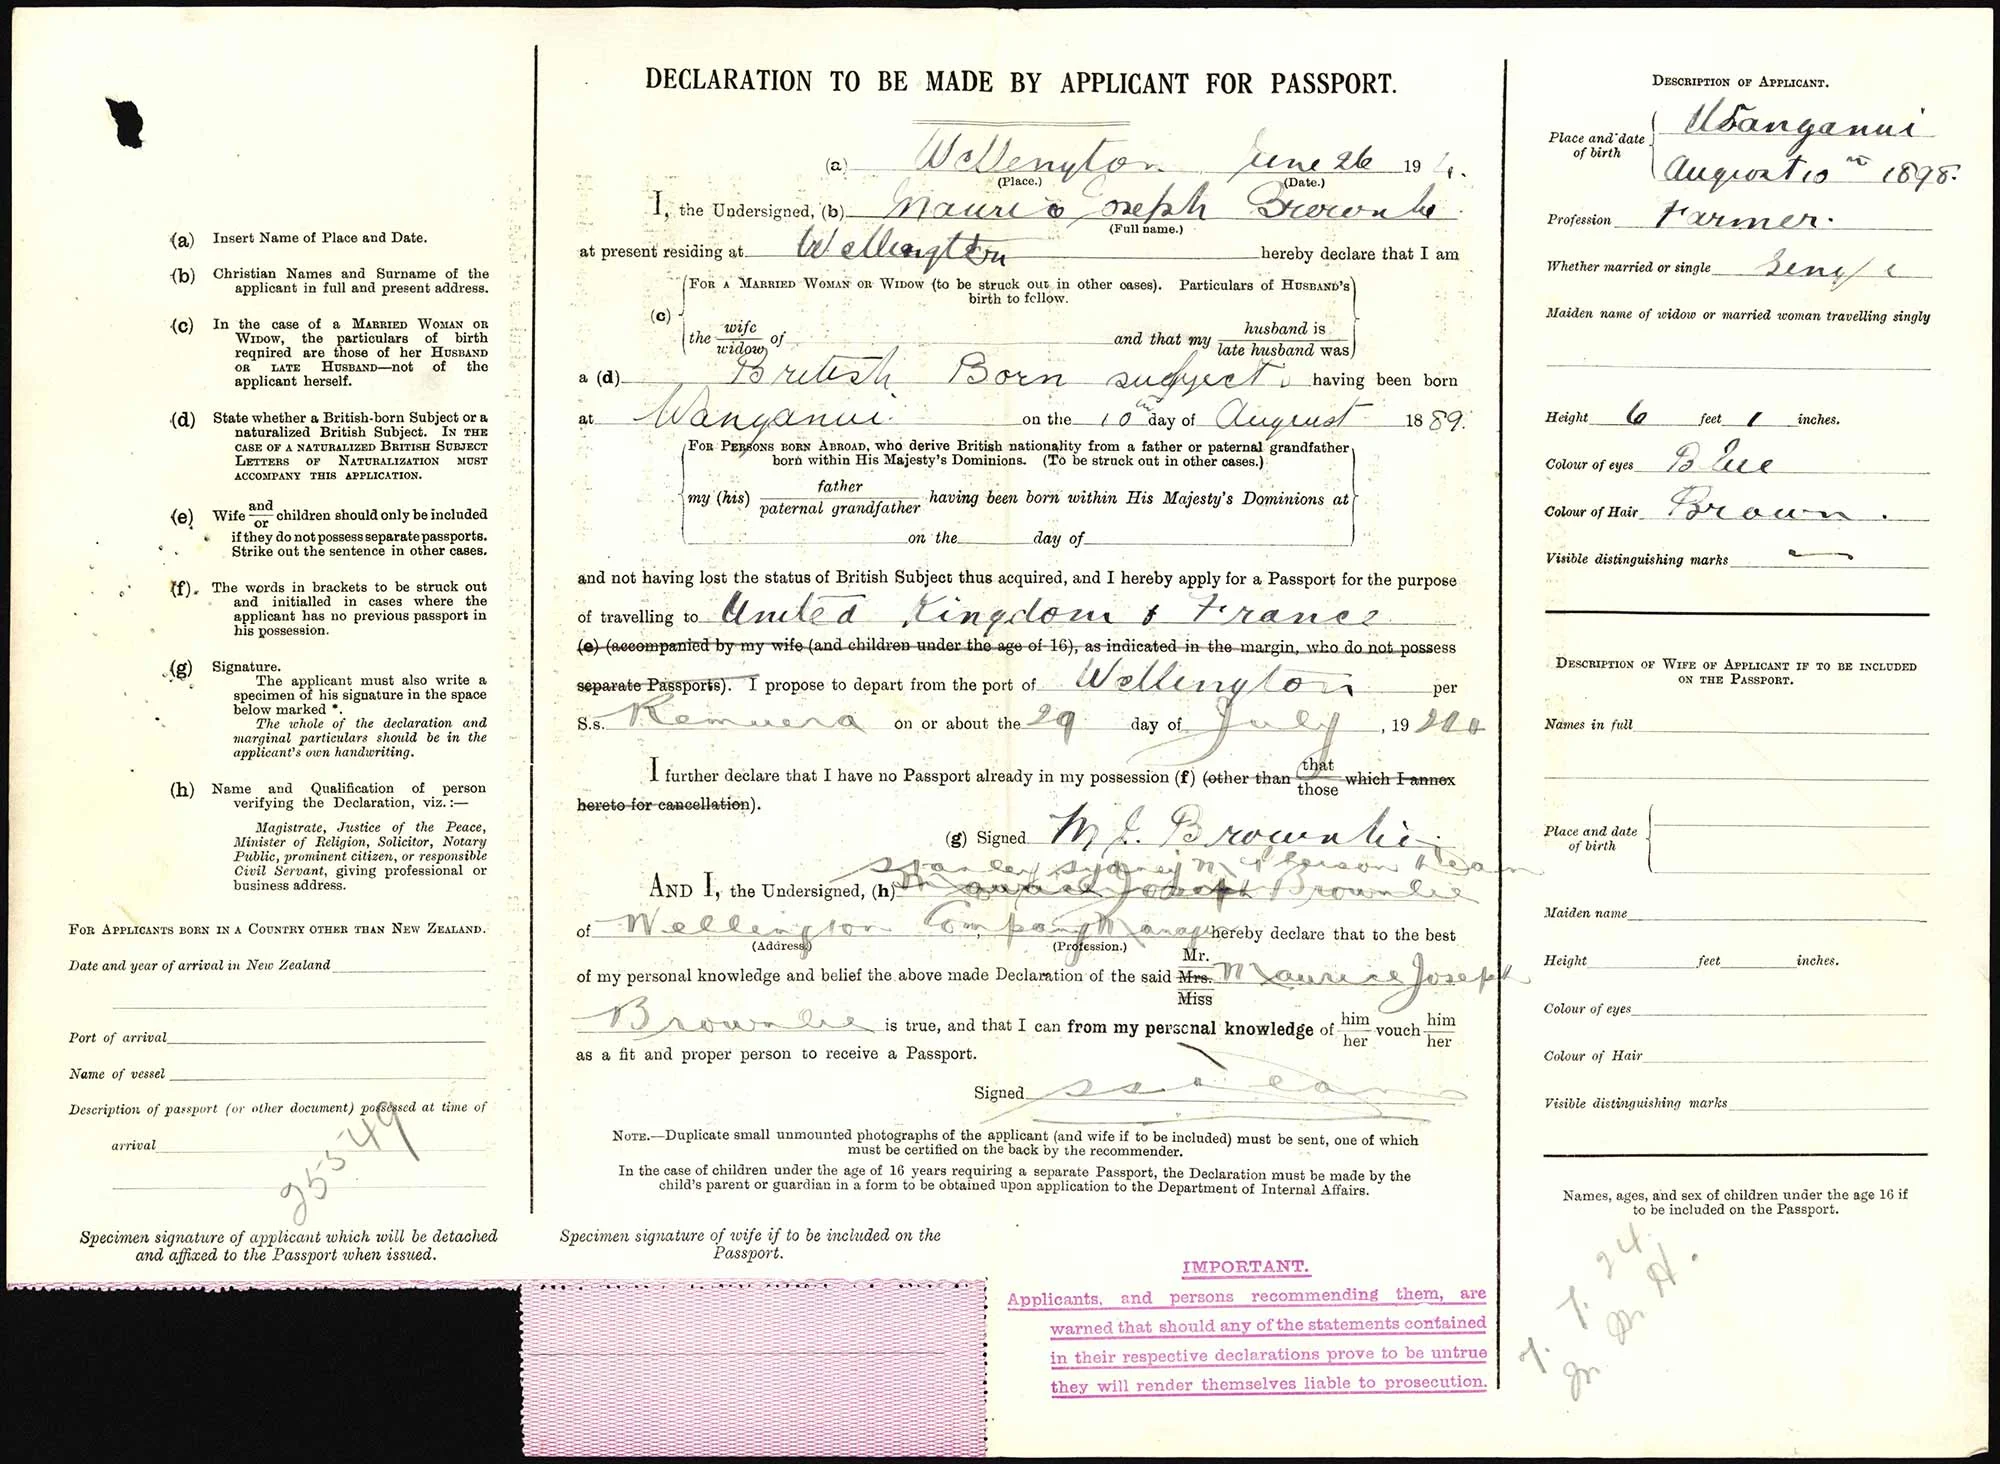 (a) Insert Name of Place and Date.
(b) Christian Names and Surname of the
applicant in full and present address.
(c) In the case of a MARRIED WOMAN OR
WIDOW, the particulars of birth
required are those of her HUSBAND
OR LATE HUSBAND—not of the
applicant herself.
(d) State whether a British-born Subject or a
naturalized British Subject. IN THE
CASE OF A NATURALIZED BRITISH SUBJECT
LETTERS OF NATURALIZATION MUST
ACCOMPANY THIS APPLICATION.
(e) Wife and/or children should only be included
if they do not possess separate passports.
Strike out the sentence in other cases.
(f) The words in brackets to be struck out
and initialled in cases where the
applicant has no previous passport in
his possession.
(g) Signature.
The applicant must also write a
specimen of his signature in the space
below marked *.
The whole of the declaration and
marginal particulars should be in the
applicant's own handwriting.
(h) Name and Qualification of person
verifying the Declaration, viz.:—
Magistrate, Justice of the Peace,
Minister of Religion, Solicitor, Notary
Public, prominent citizen, or responsible
Civil Servant, giving professional or
business address.
FOR APPLICANTS BORN IN A COUNTRY OTHER THAN NEW ZEALAND.
Date and year of arrival in New Zealand
Port of arrival
Name of vessel
Description of passport (or other document) possessed at time of
arrival
Specimen signature of applicant which will be detached
and affixed to the Passport when issued.
DECLARATION TO BE MADE BY APPLICANT FOR PASSPORT.
(a) Wellington June 26 192
(Place.) (Date.)
I, the Undersigned, (b) Maurice Joseph Brownlie
(Full name.)
at present residing at Wellington hereby declare that I am
FOR A MARRIED WOMAN OR WIDOW (to be struck out in other cases). Particulars of HUSBAND'S
birth to follow.
(c) the wife/widow of and that my husband is/late husband was
a (d) British Born subject having been born
at Wanganui on the 10th day of August 1889.
FOR PERSONS BORN ABROAD, who derive British nationality from a father or paternal grandfather
born within His Majesty's Dominions. (To be struck out in other cases.)
my (his) father/paternal grandfather having been born within His Majesty's Dominions at
on the day of
and not having lost the status of British Subject thus acquired, and I hereby apply for a Passport for the purpose
of travelling to United Kingdom & France
(e) (accompanied by my wife (and children under the age of 16), as indicated in the margin, who do not possess
separate Passports). I propose to depart from the port of Wellington per
S.s. Remuera on or about the 29 day of July, 192
I further declare that I have no Passport already in my possession (f) (other than that/those which I annex
hereto for cancellation).
(g) Signed M J. Brownlie
Stanley Sydney McPherson Dean
AND I, the Undersigned, (h) Maurice Joseph Brownlie
of Wellington Company Manager hereby declare that to the best
(Address) (Profession.)
of my personal knowledge and belief the above made Declaration of the said Mr. Mrs. Miss Maurice Joseph
Brownlie is true, and that I can from my personal knowledge of him/her vouch him/her
as a fit and proper person to receive a Passport.
Signed S S M Dean
NOTE.—Duplicate small unmounted photographs of the applicant (and wife if to be included) must be sent, one of which
must be certified on the back by the recommender.
In the case of children under the age of 16 years requiring a separate Passport, the Declaration must be made by the
child's parent or guardian in a form to be obtained upon application to the Department of Internal Affairs.
Specimen signature of wife if to be included on the
Passport.
IMPORTANT.
Applicants, and persons recommending them, are
warned that should any of the statements contained
in their respective declarations prove to be untrue
they will render themselves liable to prosecution.
DESCRIPTION OF APPLICANT.
Place and date of birth Wanganui
August 10th 1898.
Profession Farmer.
Whether married or single Single
Maiden name of widow or married woman travelling singly
Height 6 feet 1 inches.
Colour of eyes Blue
Colour of Hair Brown.
Visible distinguishing marks —
DESCRIPTION OF WIFE OF APPLICANT IF TO BE INCLUDED
ON THE PASSPORT.
Names in full
Place and date
of birth
Maiden name
Height feet inches.
Colour of eyes
Colour of Hair
Visible distinguishing marks
Names, ages, and sex of children under the age 16 if
to be included on the Passport.